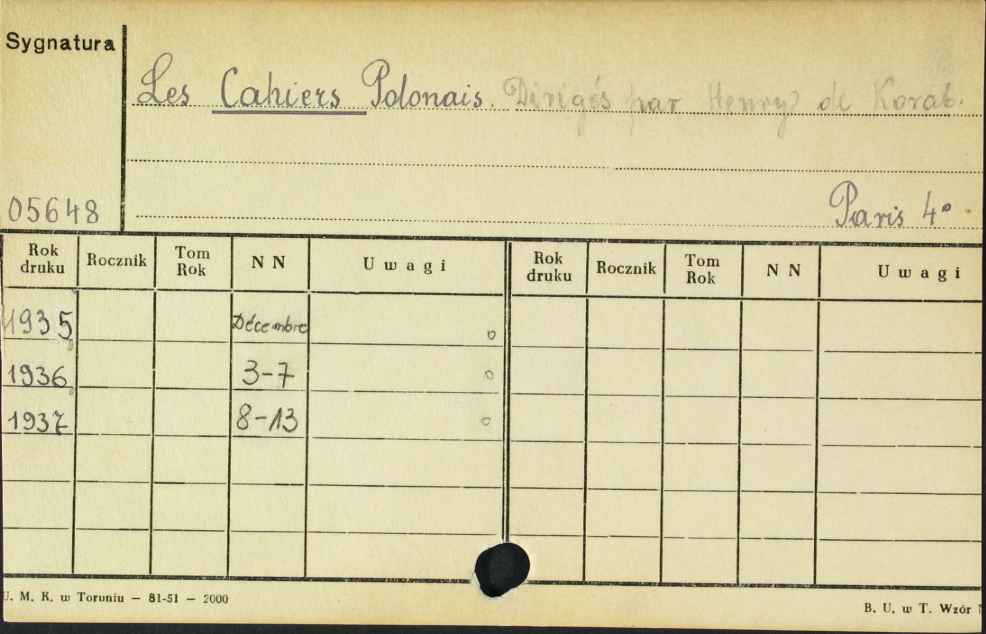 Sygnatura
Les Cahiers Polonais. Dirigés par Henry de Korab.
05648
Paris 4°
Rok druku Rocznik Tom Rok N N Uwagi Rok druku Rocznik Tom Rok N N Uwagi
1935 Décembre o
1936 3-7 o
1937 8-13 o
U. M. K. w Toruniu — 81-51 — 2000
B. U. w T. Wzór